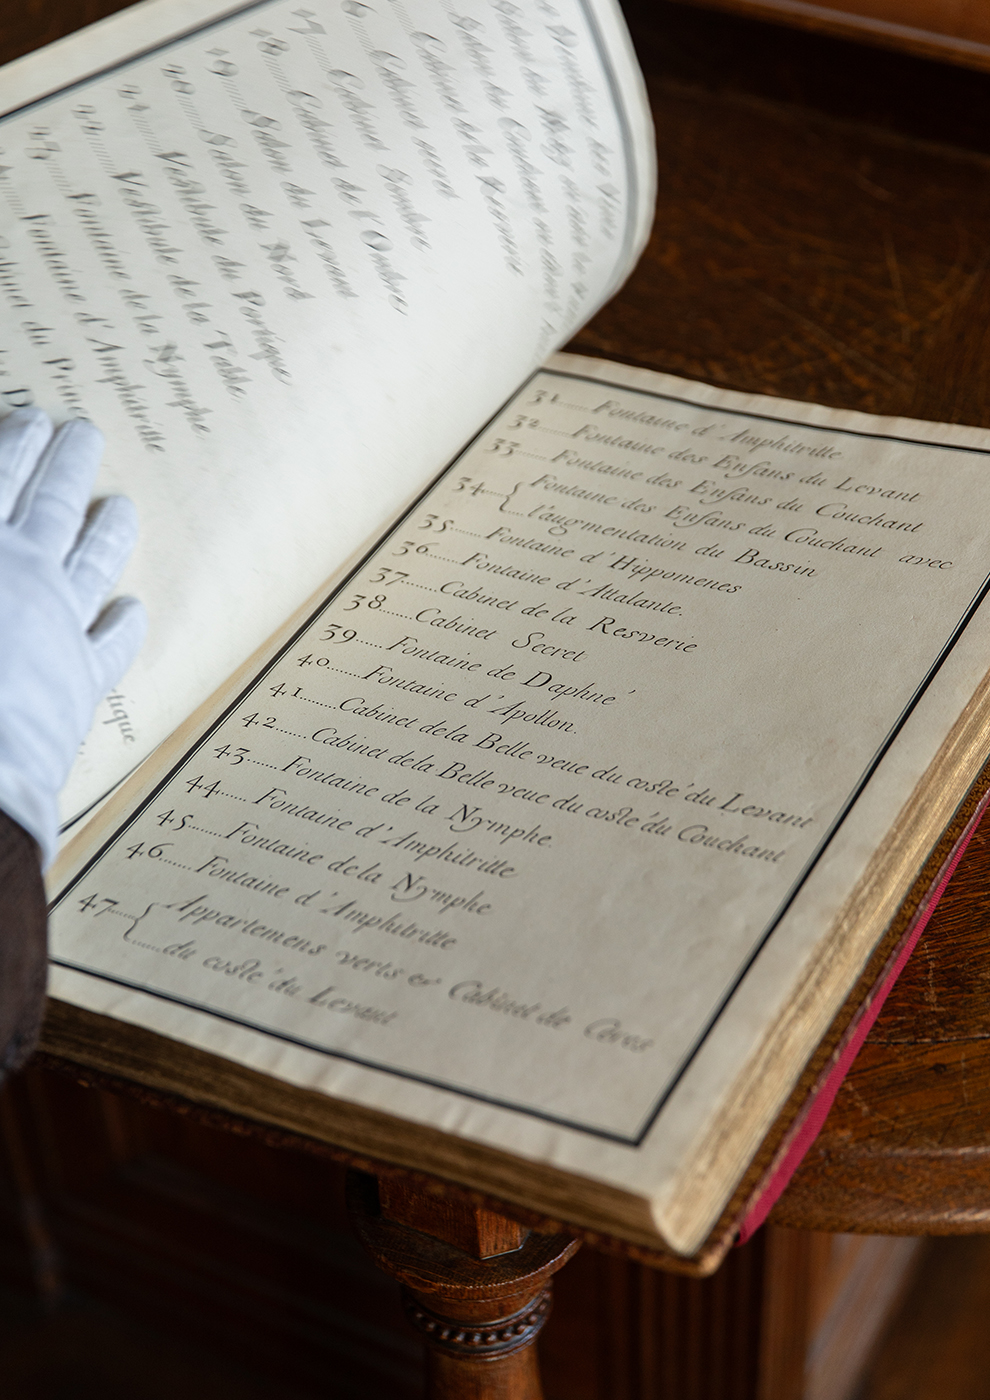 17 Cabinet Sombre
18 Cabinet de l'Ombre
19 Salon du Levant
20 Salon du Nord
21 Vestibule du Portique
22 Vestibule de la Table
23 Fontaine de la Nymphe
Fontaine d'Amphitritte
Cabinet du Prince
tique
31 Fontaine d'Amphitritte
32 Fontaine des Enfans du Levant
33 Fontaine des Enfans du Couchant
34 Fontaine des Enfans du Couchant avec
l'augmentation du Bassin
35 Fontaine d'Hippomenes
36 Fontaine d'Attalante.
37 Cabinet de la Resverie
38 Cabinet Secret
39 Fontaine de Daphné
40 Fontaine d'Apollon.
41 Cabinet de la Belle veue du costé du Levant
42 Cabinet de la Belle veue du costé du Couchant
43 Fontaine de la Nymphe.
44 Fontaine d'Amphitritte
45 Fontaine de la Nymphe
46 Fontaine d'Amphitritte
47 Appartemens verts & Cabinet de Ceres
du costé du Levant